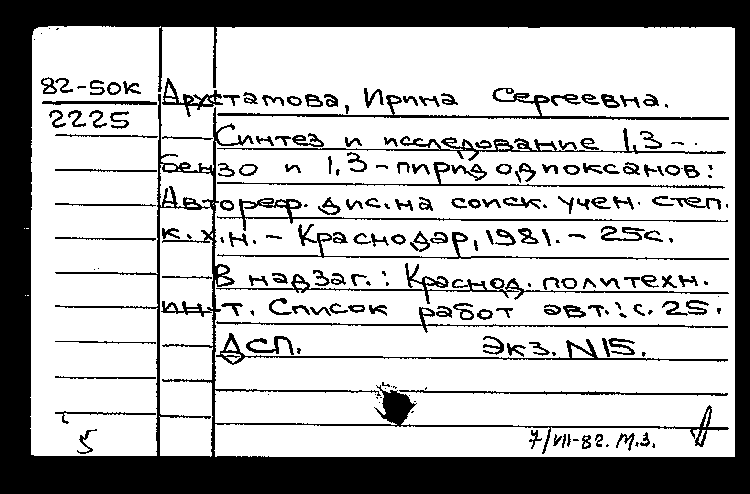 82-5ок
2225
Арустамова, Ирина Сергеевна.
Синтез и исследование 1,3-
бензо и 1,3-пиридодиоксанов:
Автореф. дис. на соиск. учен. степ.
к.х.н. - Краснодар, 1981. - 25с.
В надзаг.: Краснод. политехн.
ин-т. Список работ авт.: с. 25.
ДСП. Экз. N15.
5 7/VII-82. М.З.